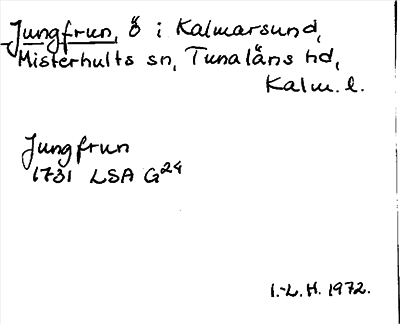 Jungfrun, ö i Kalmarsund,
Misterhults sn, Tunaläns hd,
Kalm. l.
Jungfrun
1731 LSA G24
I.-L.H. 1972.